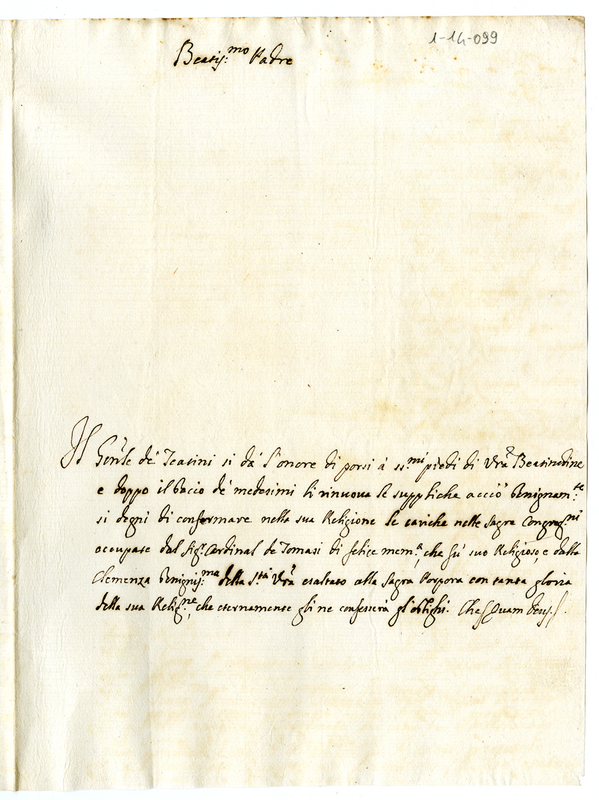 1-14-099
Beatis:mo Padre
Il Gen'le de' Teatini si dà l'onore di porsi à ss.mi piedi di Vrã Beatitudine
e doppo il bacio de' medesimi li rinuova le suppliche acciò benignam:te
si degni di confermare nella sua Religione le cariche nelle sagre Congreg:ni
occupate dal Sig.r Cardinal de Tomasi di felice mem:a, che fù suo Religioso, e dalla
Clemenza benignis:ma della S.tà Vrã esaltato alla Sagra Porpora con tanta gloria
della sua Relig:ne, che eternamente gli ne confesserà gl'oblighi. Che Quam Deus